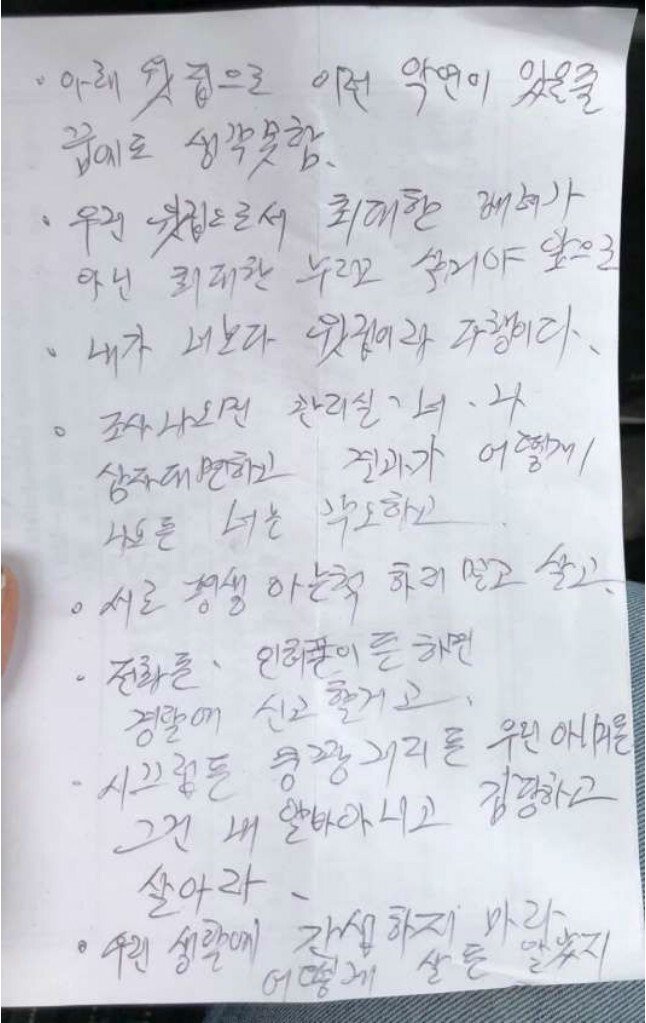 · 아래 윗집으로 이런 악연이 있을줄
꿈에도 생각못함.
· 우린 윗집으로서 최대한 배려가
아닌 최대한 누리고 살거야 앞으로
· 내가 너보다 윗집이라 다행이다.
· 조사나오면 관리실·너·나
삼자대면하고 결과가 어떻게
나오든 너는 각오하고.
· 서로 평생 아는척 하지 말고 살고.
· 전화든, 인터폰이든 하면
경찰에 신고할거고.
· 시끄럽든 쿵쾅거리든 우린 아니며
그건 내 알바아니고 감당하고
살아라.
· 우린 생활에 간섭하지 마라
어떻게 살든 말든지